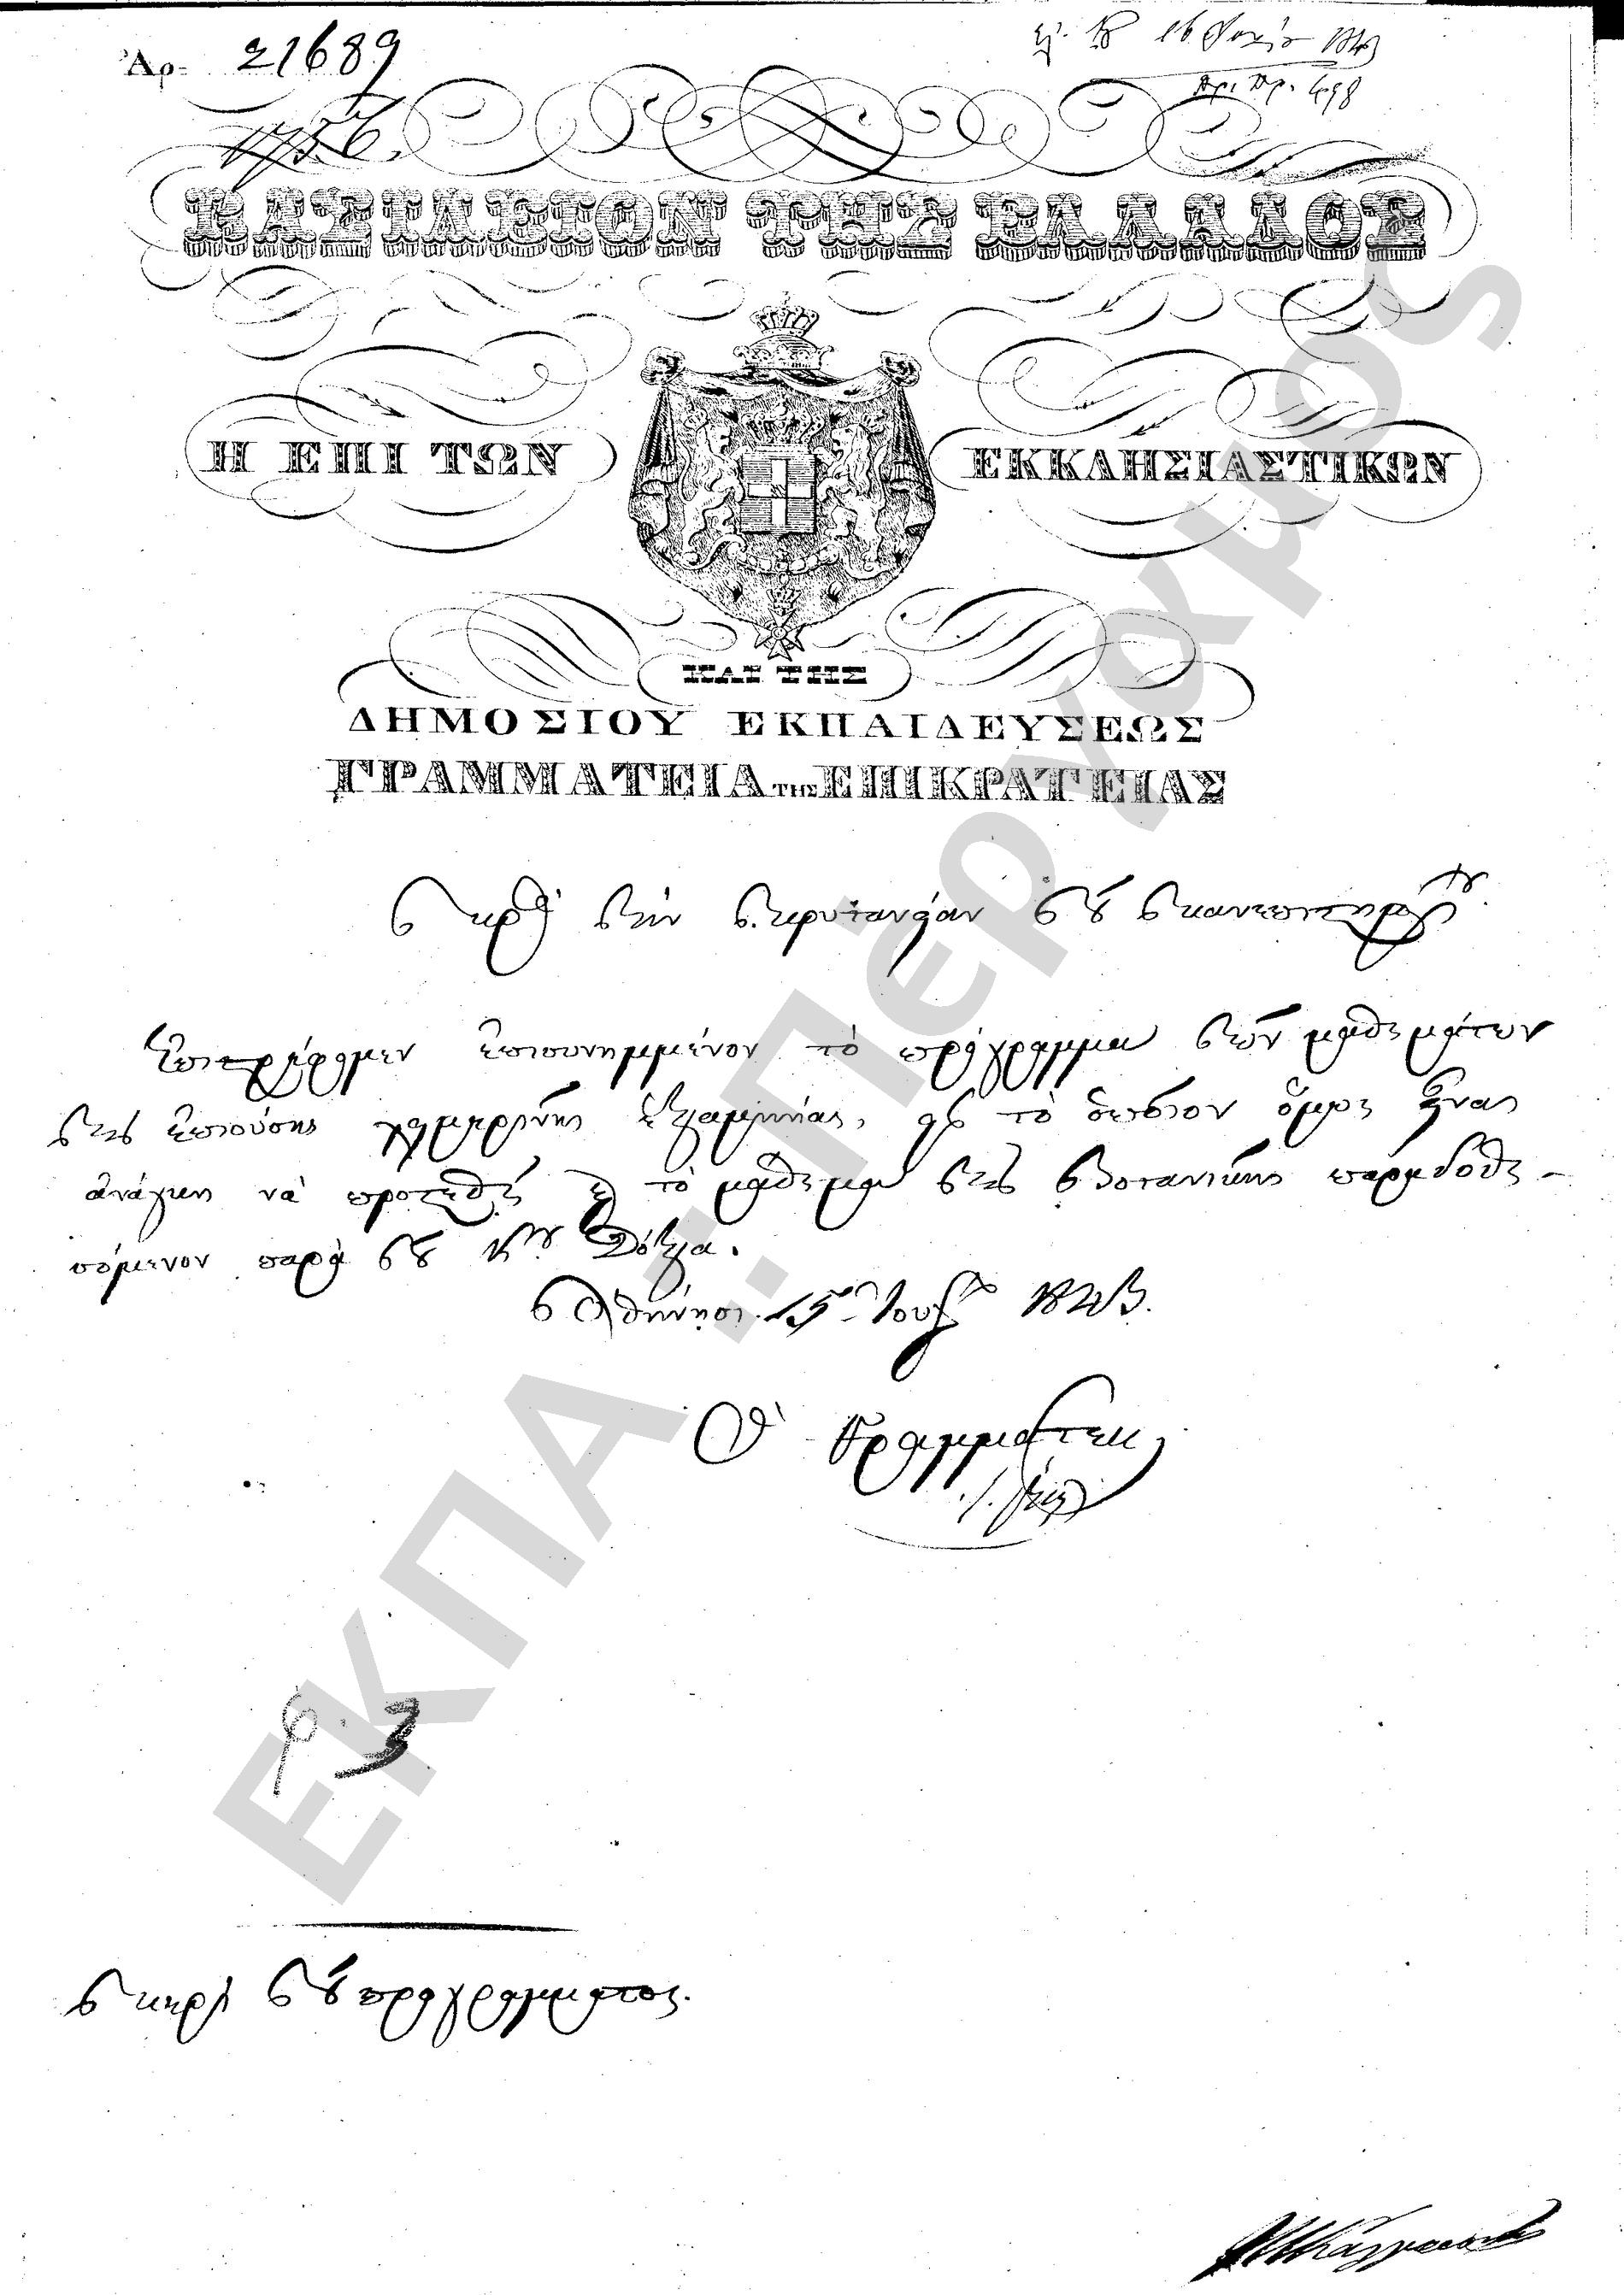 Ἀρ. 21689
16 1843
Αρ. Πρ. 498
ΒΑΣΙΛΕΙΟΝ ΤΗΣ ΕΛΛΑΔΟΣ
Η ΕΠΙ ΤΩΝ ΕΚΚΛΗΣΙΑΣΤΙΚΩΝ
ΚΑΙ ΤΗΣ
ΔΗΜΟΣΙΟΥ ΕΚΠΑΙΔΕΥΣΕΩΣ
ΓΡΑΜΜΑΤΕΙΑ ΤΗΣ ΕΠΙΚΡΑΤΕΙΑΣ
Πρὸς τὴν πρυτανείαν τοῦ Πανεπιστημίου
Ἐπιστρέφομεν ἐπισυνημμένον τὸ πρόγραμμα τῶν μαθημάτων
τῆς ἐπιούσης χειμερινῆς ἑξαμηνίας, εἰς τὸ ὁποῖον ὅμως εἶναι
ἀνάγκη νὰ προστεθῇ καὶ τὸ μάθημα τῆς Βοτανικῆς παραδοθη-
σόμενον παρὰ τοῦ Κου
Ἀθήνησι 15 1843.
Ὁ Γραμματεὺς
Περὶ τοῦ προγράμματος.
ΕΚΠΑ :: Πέργαμος